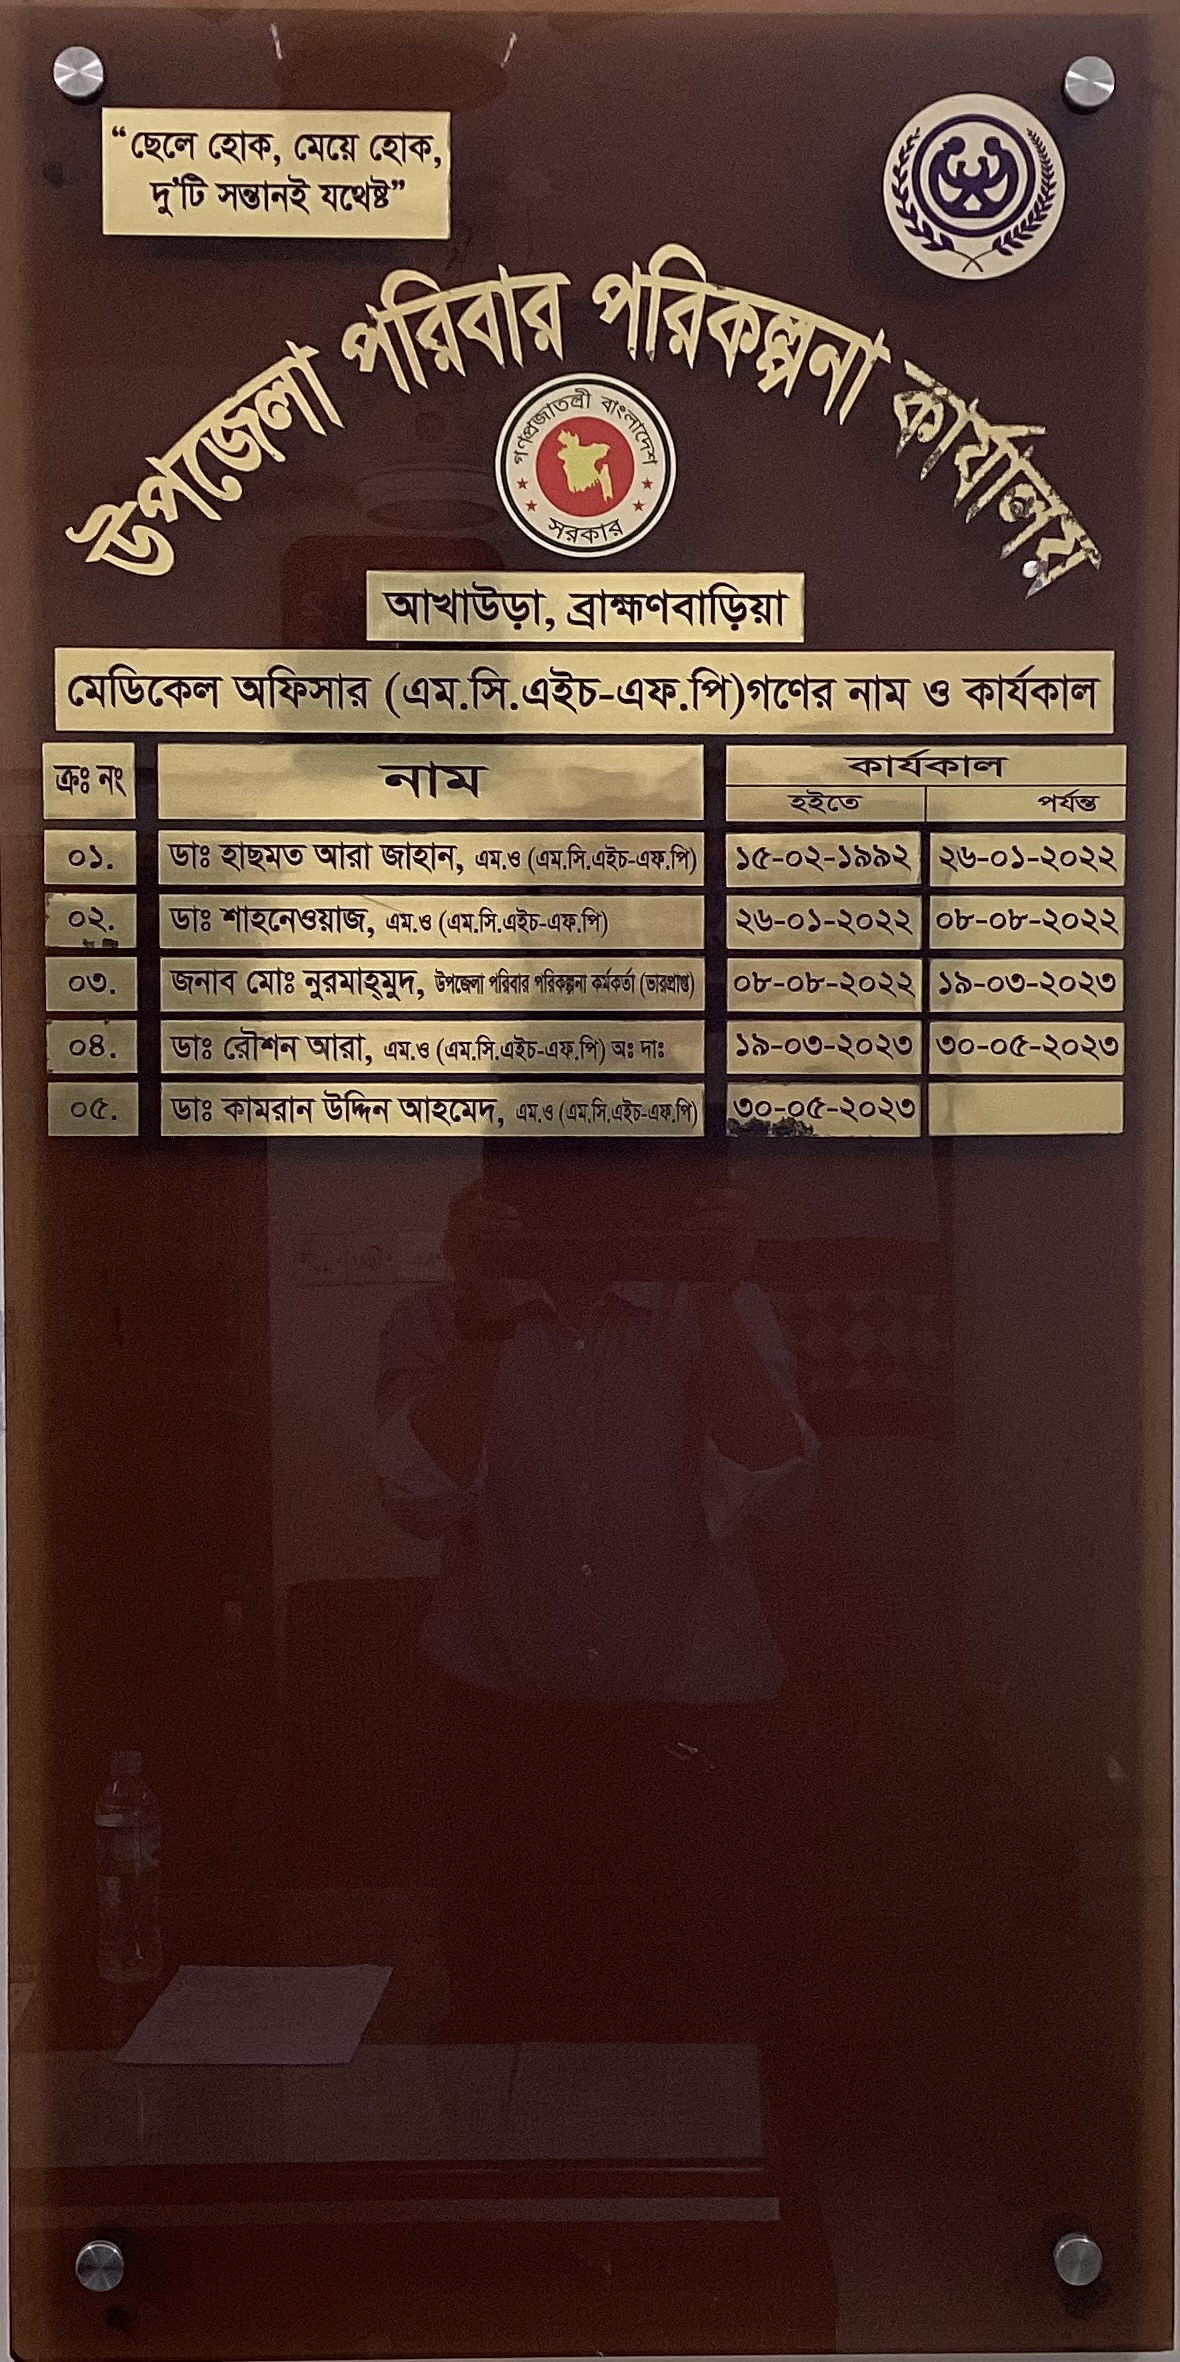 “ছেলে হোক, মেয়ে হোক,
দু'টি সন্তানই যথেষ্ট”
উপজেলা পরিবার পরিকল্পনা কার্যালয়
গণপ্রজাতন্ত্রী বাংলাদেশ
সরকার
আখাউড়া, ব্রাহ্মণবাড়িয়া
মেডিকেল অফিসার (এম.সি.এইচ-এফ.পি)গণের নাম ও কার্যকাল
ক্রঃ নং নাম কার্যকাল
হইতে পর্যন্ত
০১. ডাঃ হাছমত আরা জাহান, এম.ও (এম.সি.এইচ-এফ.পি) ১৫-০২-১৯৯২ ২৬-০১-২০২২
০২. ডাঃ শাহনেওয়াজ, এম.ও (এম.সি.এইচ-এফ.পি) ২৬-০১-২০২২ ০৮-০৮-২০২২
০৩. জনাব মোঃ নুরমাহ্‌মুদ, উপজেলা পরিবার পরিকল্পনা কর্মকর্তা (ভারপ্রাপ্ত) ০৮-০৮-২০২২ ১৯-০৩-২০২৩
০৪. ডাঃ রৌশন আরা, এম.ও (এম.সি.এইচ-এফ.পি) অঃ দাঃ ১৯-০৩-২০২৩ ৩০-০৫-২০২৩
০৫. ডাঃ কামরান উদ্দিন আহমেদ, এম.ও (এম.সি.এইচ-এফ.পি) ৩০-০৫-২০২৩